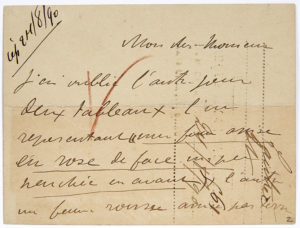 rép 24/8/90
Mon cher Monsieur
J'ai oublié l'autre jour
deux tableaux. l'un
représentant une femme assise
en rose de face
penchée en avant l'autre
un femme rousse assise par
2